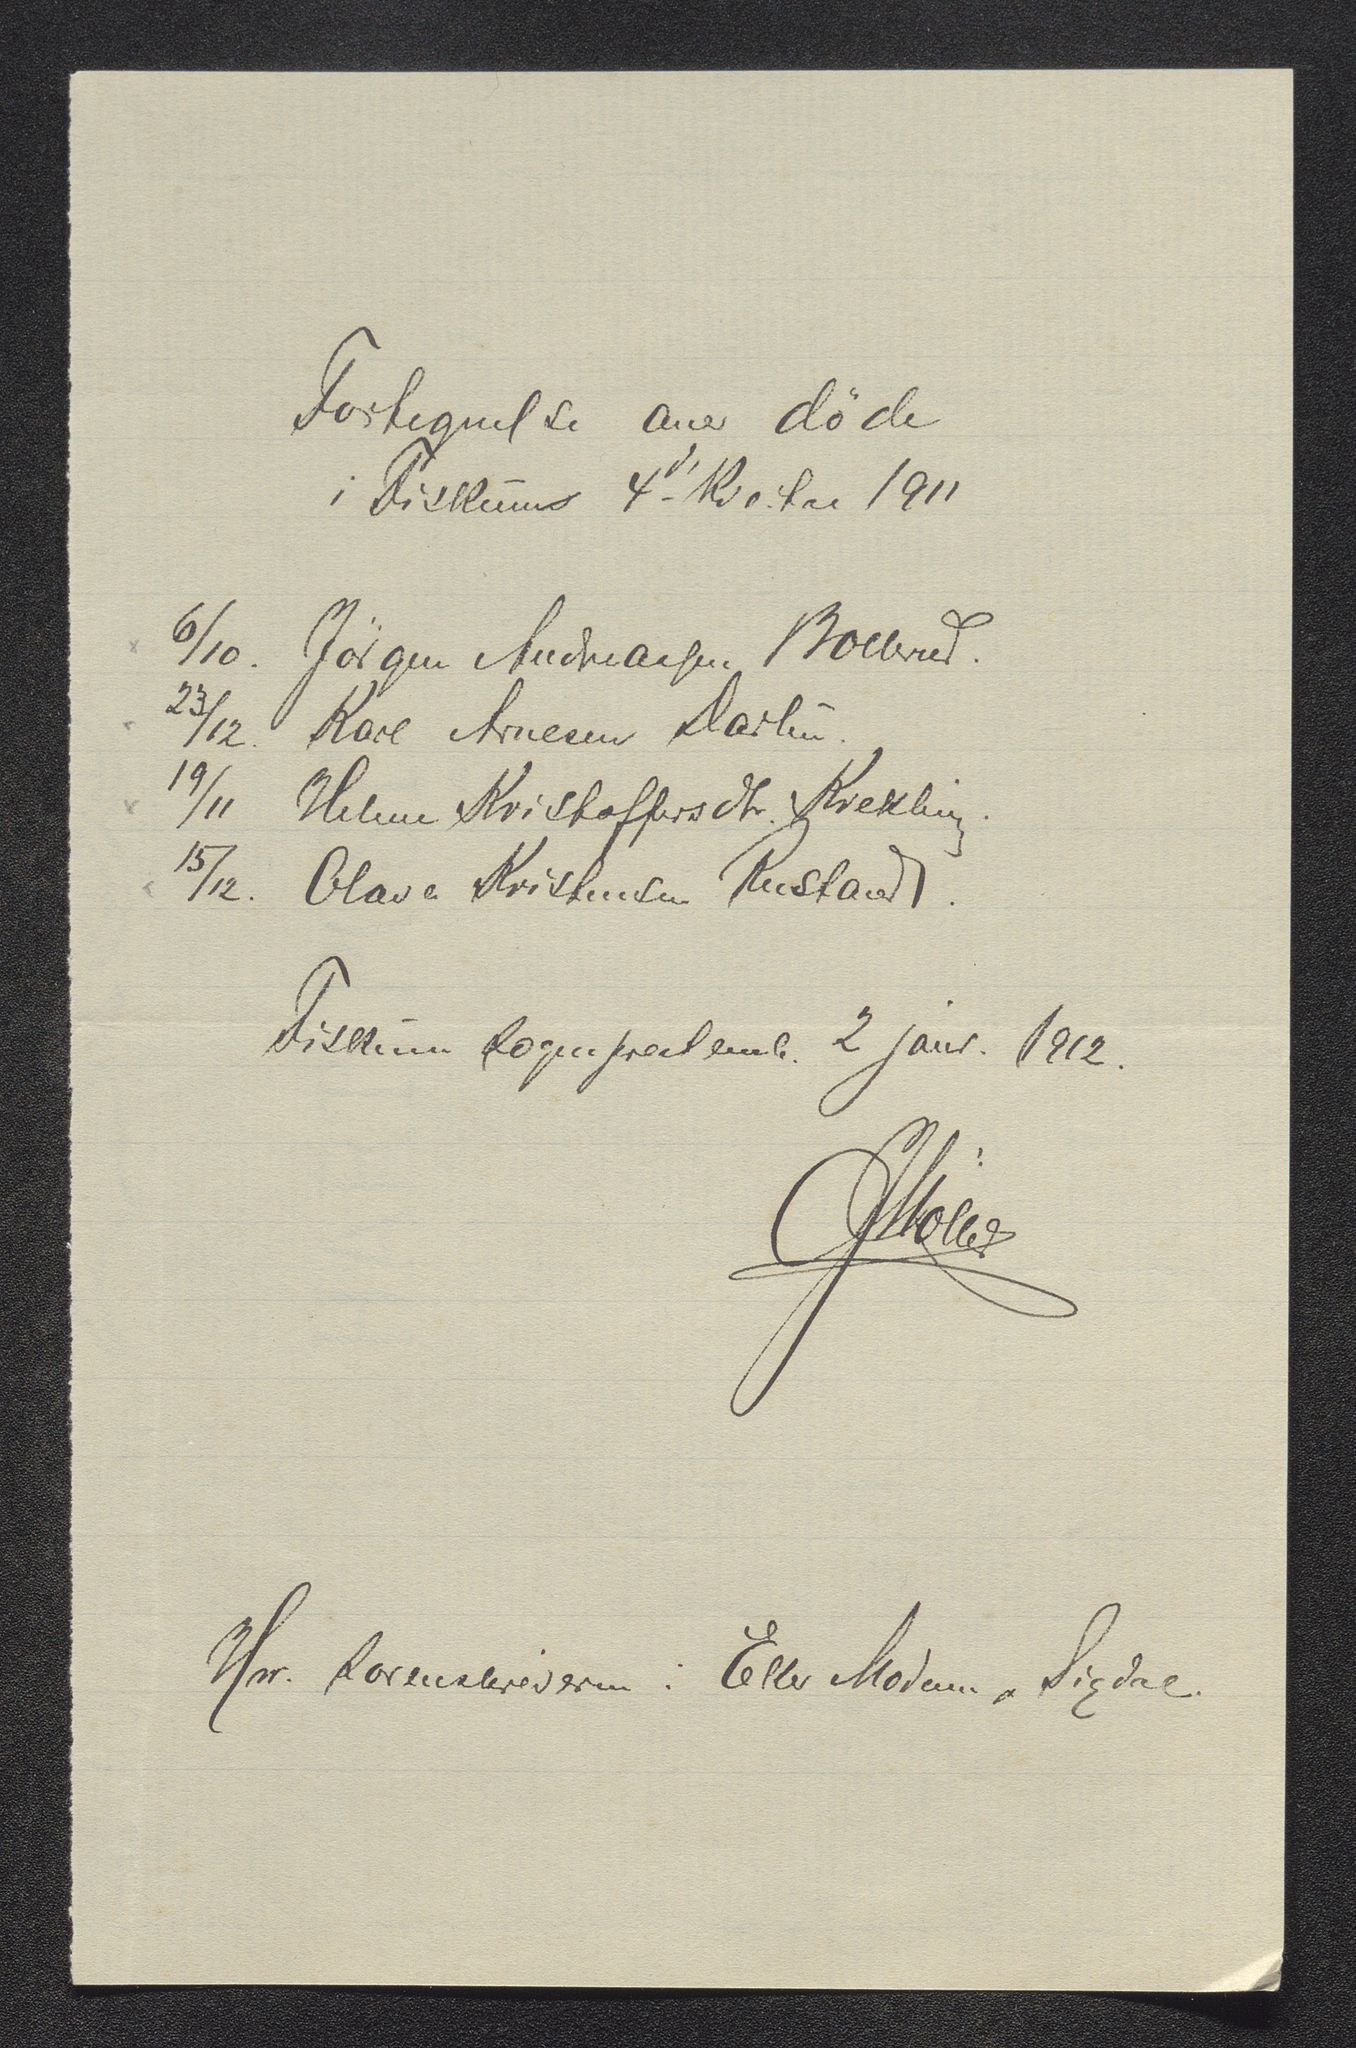 Fortegnelse over döde
i Fiskum 4d. Kvartal 1911
6/10. Jörgen Andreassen Bollerud.
23/12. Karl Arnesen Darbu.
19/11 Helene Kristoffersdtr. Krekling.
15/12. Olava Kristensen Rustand.
Fiskum sogneprestemb. 2 janr. 1912.
Möller
Hr. sorenskriveren i Eker Modum & Sigdal.